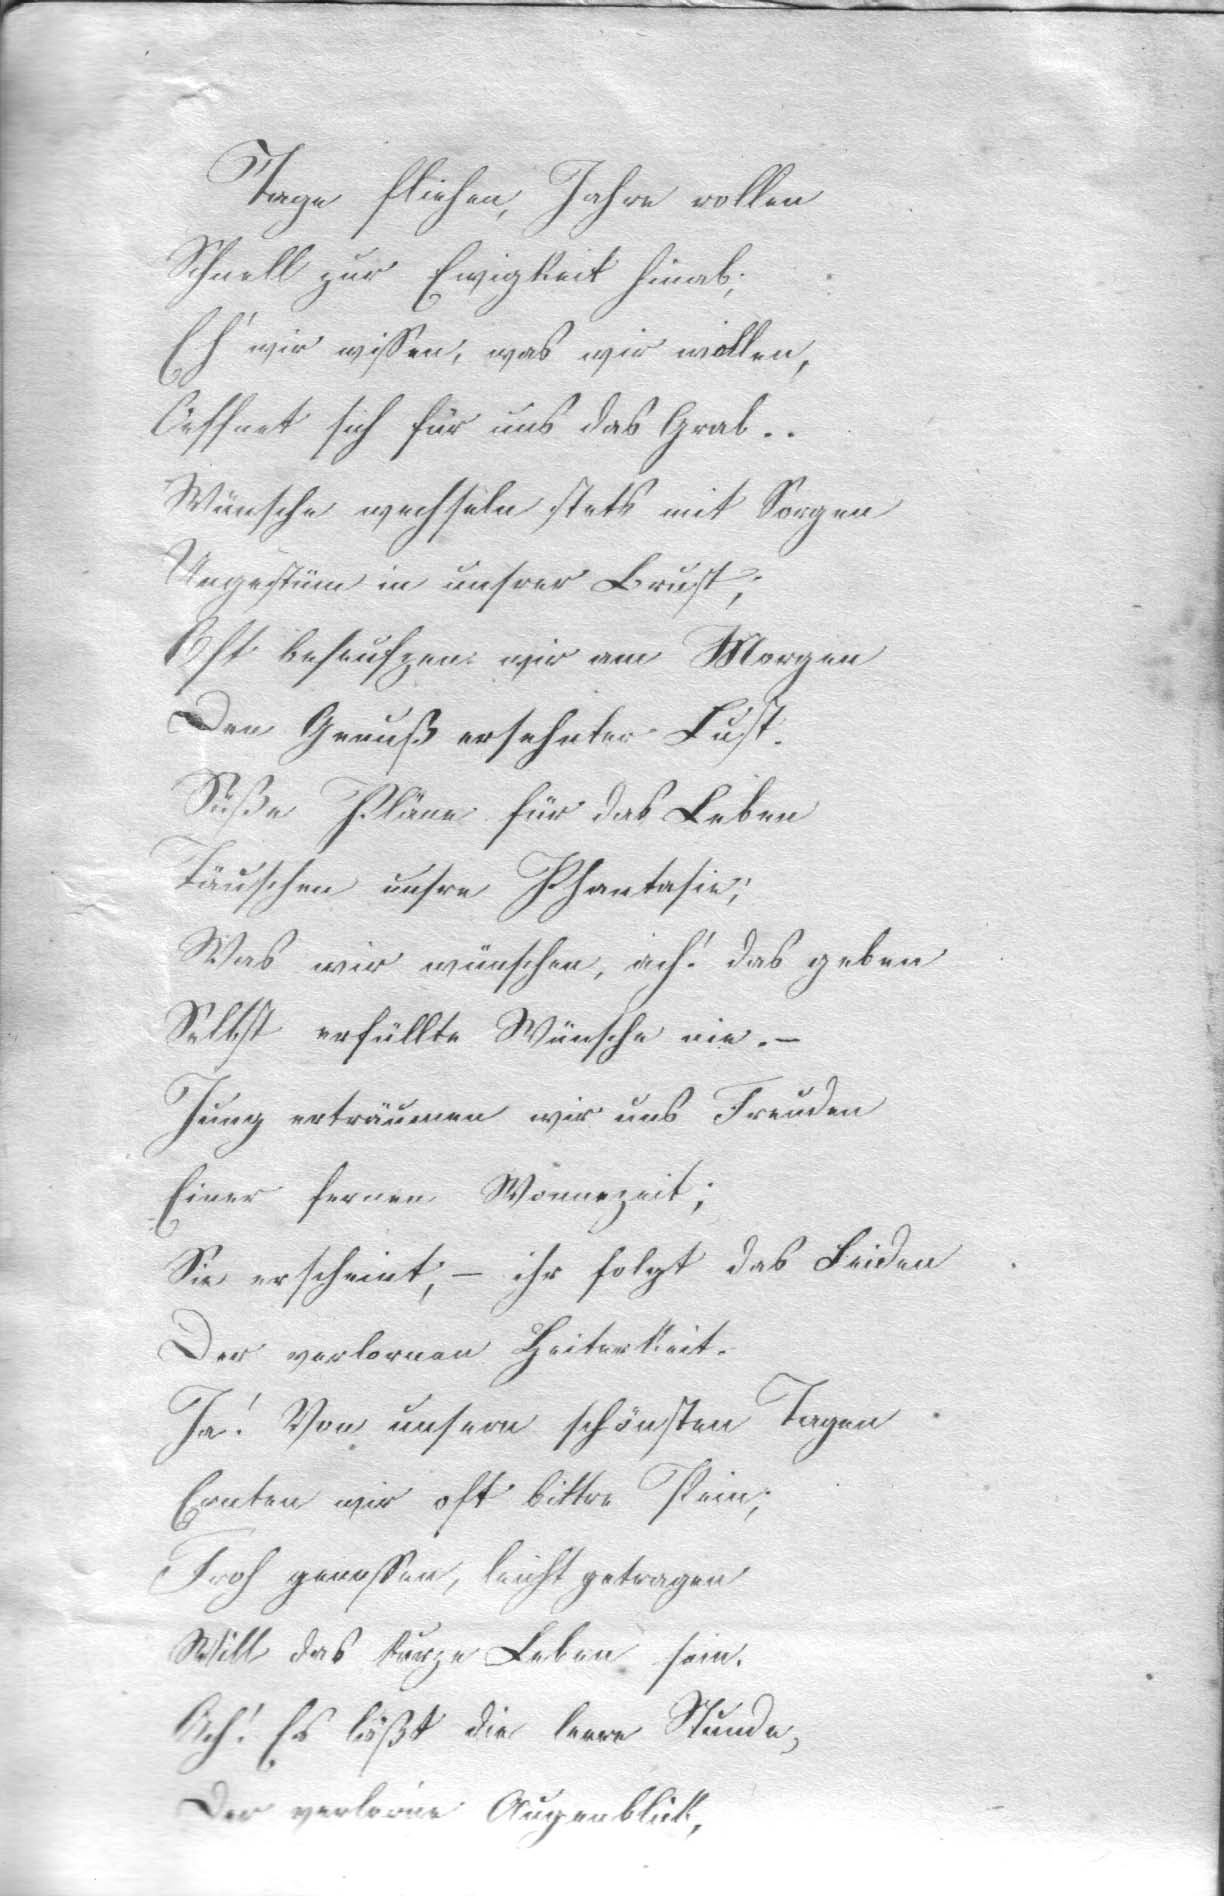 Tage fliehen, Jahre rollen
Schnell zur Ewigkeit hinab;
Eh' wir wissen, was wir wollen,
Oeffnet sich für uns das Grab..
Wünsche wechseln stets mit Sorgen
Ungestüm in unsrer Brust;
Oft beseufzen wir am Morgen
Den Genuß ersehnter Lust.
Süße Pläne für das Leben
Täuschen unsre Phantasie;
Was wir wünschen, ach! das geben
Selbst erfüllte Wünsche nie.-
Jung erträumen wir uns Freuden
Einer fernen Wonnezeit;
Sie erscheint; – ihr folgt das Leiden
Der verlornen Heiterkeit.
Ja! Von unsern schönsten Tagen
Ernten wir oft bittre Pein;
Froh genossen, leicht getragen
Will das kurze Leben sein.
Ach! Es läßt die leere Stunde,
Der verlorne Augenblick,